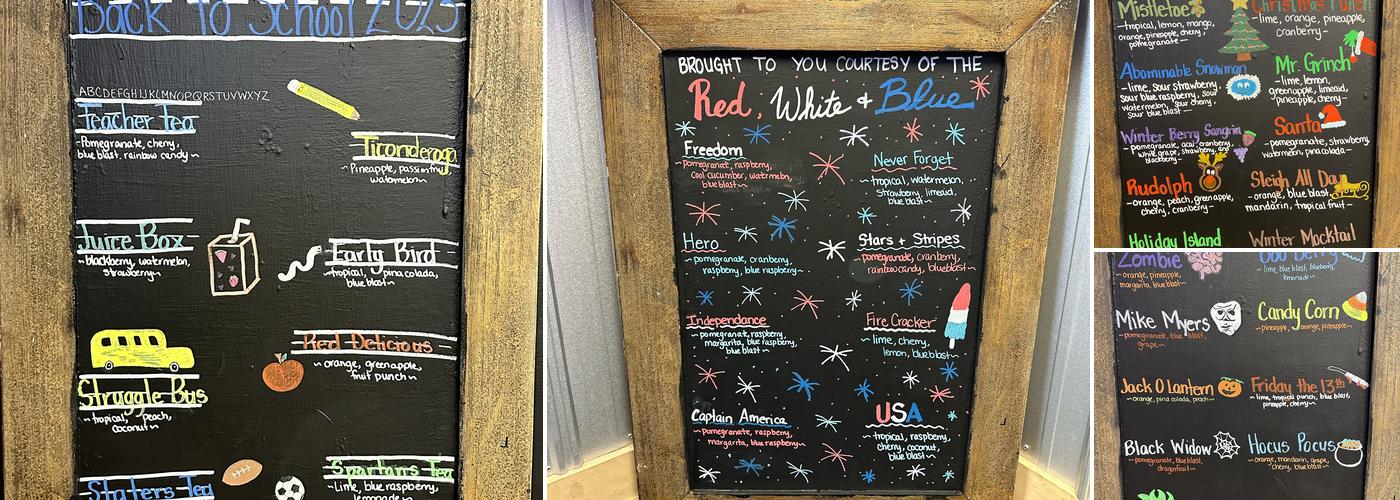 Back To School 2023
ABCDEFGHIJKLMNOPQRSTUVWXYZ
Teacher Tea
~Pomegranate, cherry,
blue blast, rainbow candy~
Ticonderoga
~Pineapple, passionfruit,
watermelon~
Juice Box
~blackberry, watermelon,
strawberry~
Early Bird
~tropical, pina colada,
blue blast~
Red Delicious
~orange, green apple,
fruit punch~
Struggle Bus
~tropical, peach,
coconut~
Spartans Tea
~Lime, blue raspberry,
lemonade~
Staters Tea
BROUGHT TO YOU COURTESY OF THE
Red, White + Blue
Freedom
~pomegranate, raspberry,
cool cucumber, watermelon,
blue blast~
Never Forget
~tropical, watermelon,
strawberry, limeaid,
blue blast~
Hero
~pomegranate, cranberry,
raspberry, blue raspberry~
Stars + Stripes
~pomegranate, cranberry,
rainbow candy, blueblast~
Independance
~pomegranate, raspberry,
margarita, blue raspberry,
blue blast~
Fire Cracker
~lime, cherry,
lemon, blue blast~
Captain America
~pomegranate, raspberry,
margarita, blue raspberry~
USA
~tropical, raspberry,
cherry, coconut,
blue blast~
Mistletoe
~tropical, lemon, mango,
orange, pineapple, cherry,
pomegranate~
Christmas Punch
~lime, orange, pineapple,
cranberry~
Abominable Snowman
~lime, sour strawberry,
sour blue raspberry, sour
watermelon, sour cherry,
sour blue blast~
Mr. Grinch
~lime, lemon,
greenapple, limeaid,
pineapple, cherry~
Winter Berry Sangria
~pomegranate, acai, cranberry,
white grape, strawberry, and
blackberry~
Santa
~pomegranate, strawberry,
watermelon, pina colada~
Rudolph
~orange, peach, green apple,
cherry, cranberry~
Sleigh All Day
~orange, blue blast,
mandarin, tropical fruit~
Holiday Island
Winter Mocktail
Zombie
~orange, pineapple,
margarita, blue blast~
Boo Berry
~lime, blue blast, blueberry,
lemonade~
Mike Myers
~pomegranate, blue blast,
grape~
Candy Corn
~pineapple, orange, pineapple~
Jack O Lantern
~orange, pina colada, peach~
Friday the 13th
~lime, tropical punch, blue blast,
pineapple, cherry~
Black Widow
~pomegranate, blue blast,
dragonfruit~
Hocus Pocus
~orange, mandarin, grape,
cherry, blue blast~